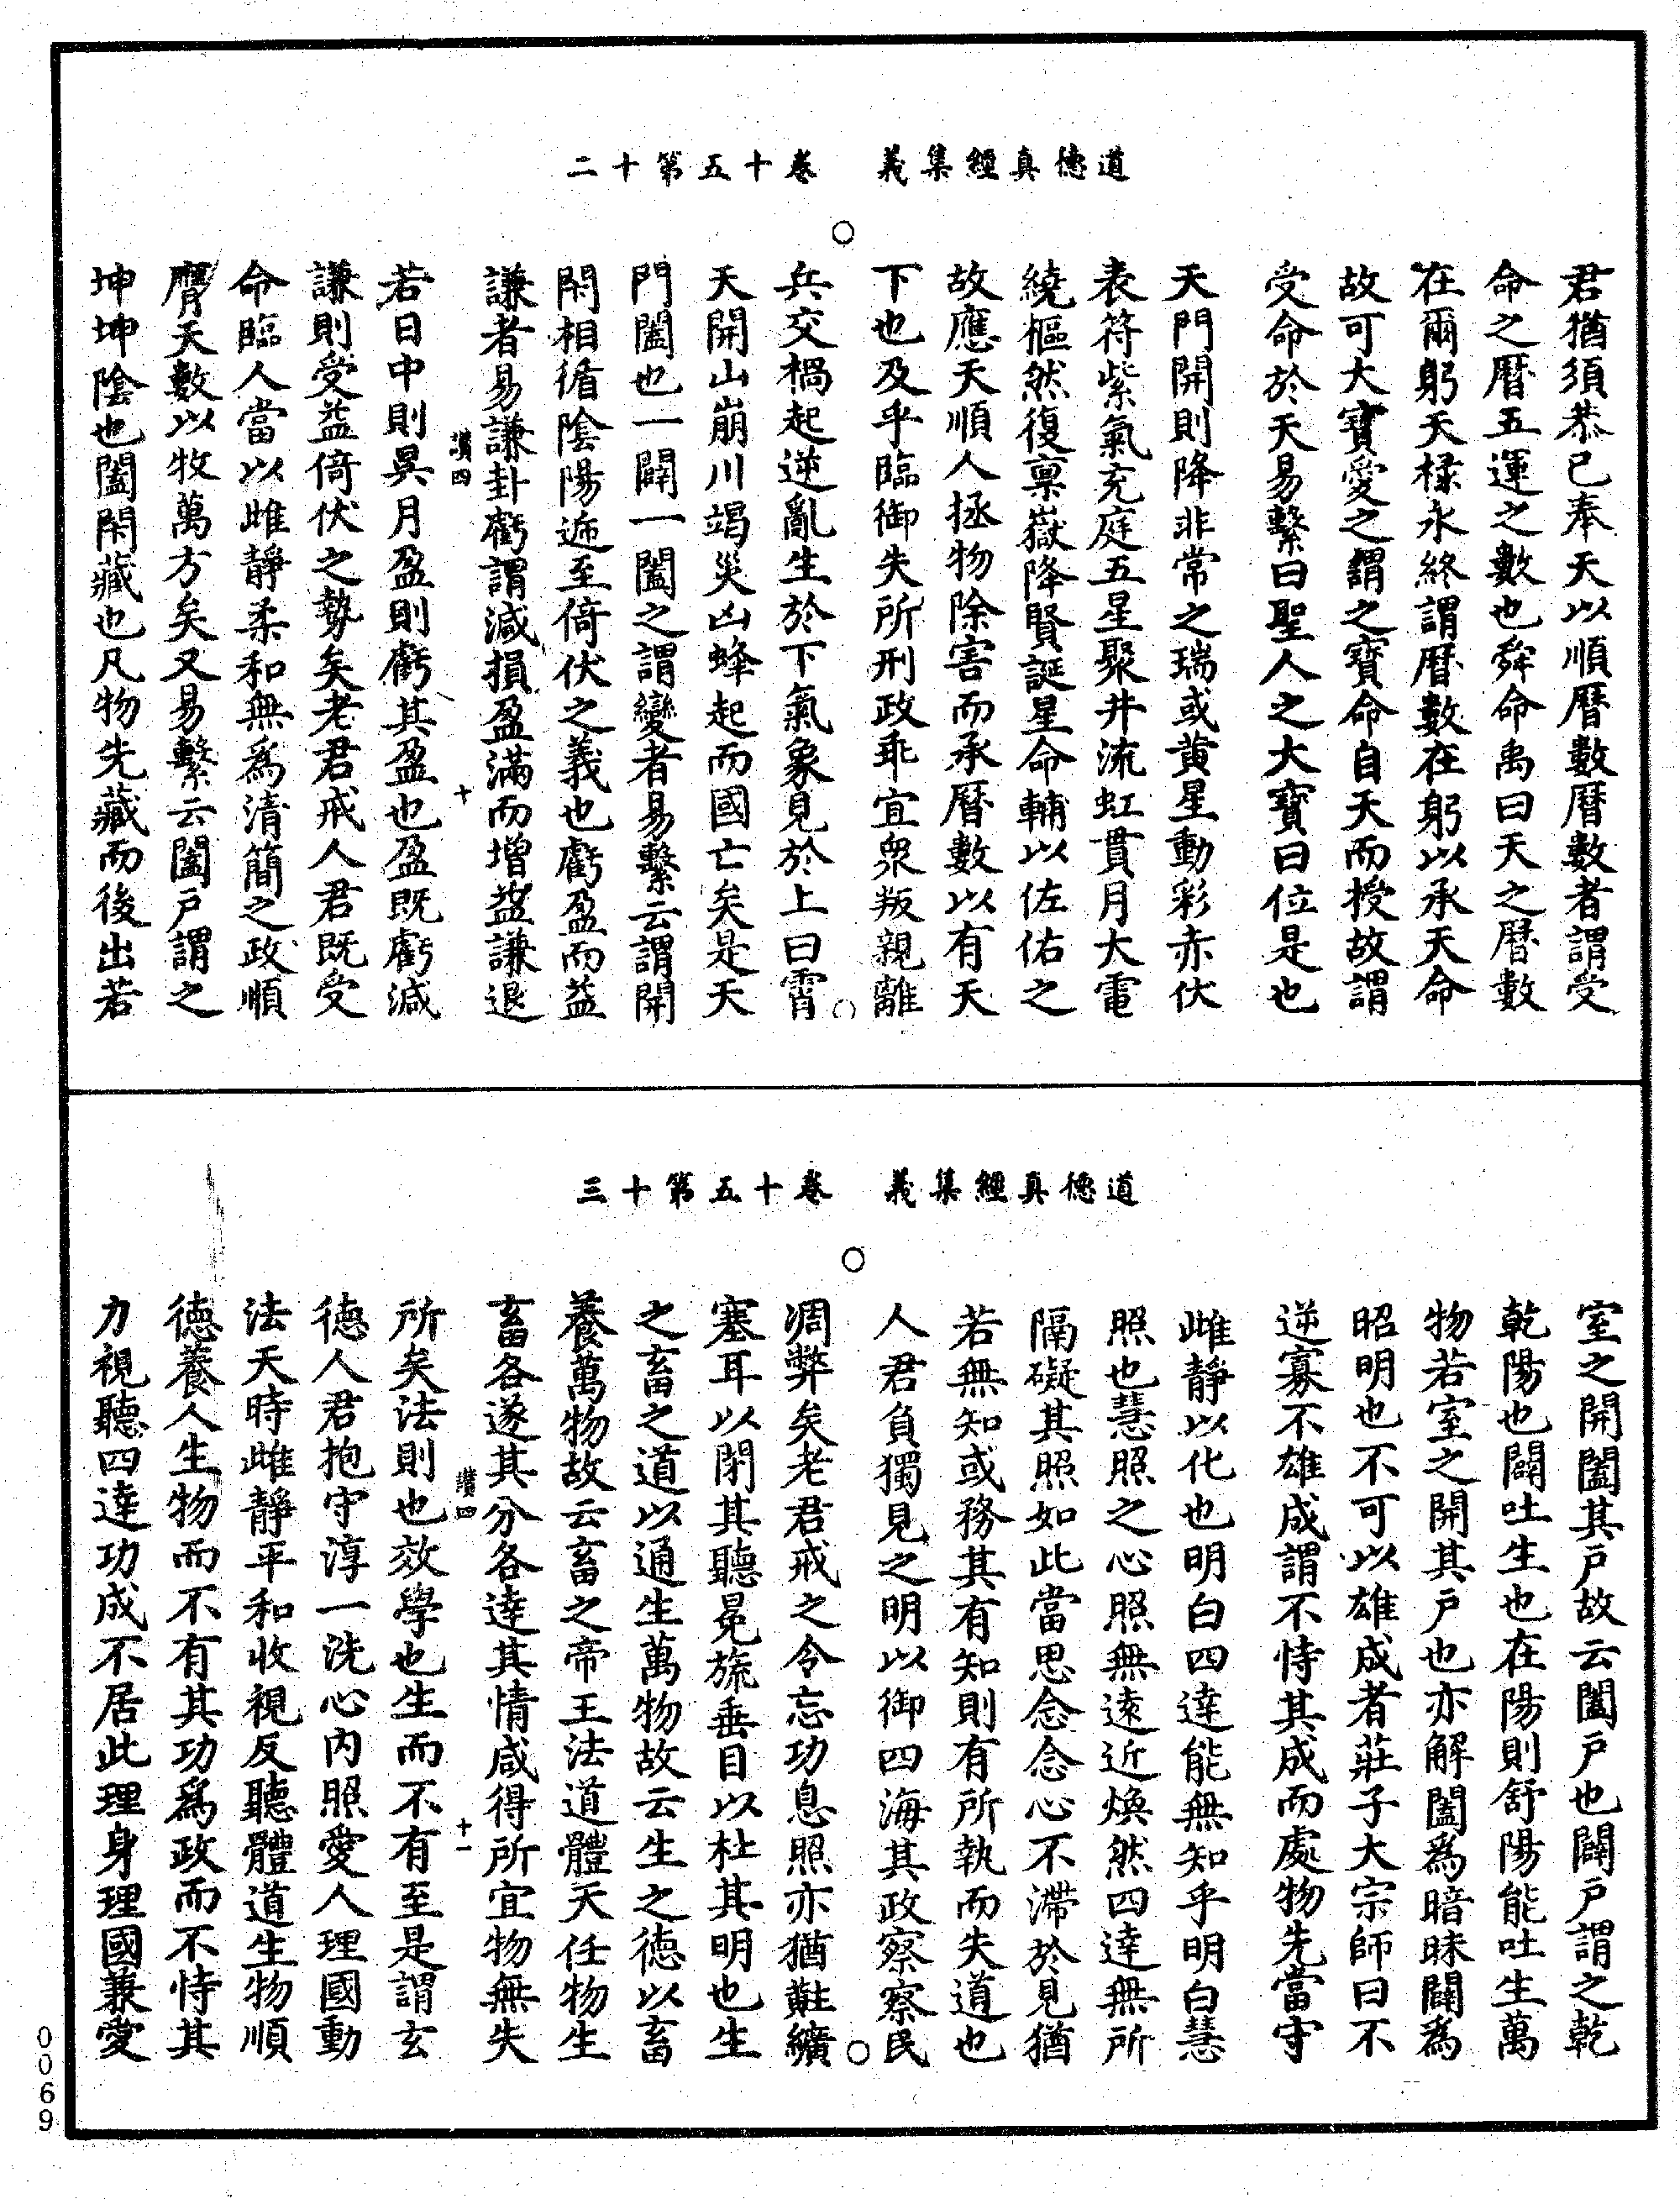 道德真經集義　卷十五第十二
君猶須恭己奉天以順曆數曆數者謂受
命之曆五運之數也舜命禹曰天之曆數
在爾躬天祿永終謂曆數在躬以承天命
故可大寶愛之謂之寶命自天而授故謂
受命於天易繫曰聖人之大寶曰位是也
天門開則降非常之瑞或黃星動彩赤伏
表符紫氣充庭五星聚井流虹貫月大電
繞樞然復稟嶽降賢誕星命輔以佐佑之
故應天順人拯物除害而承曆數以有天
下也及乎臨御失所刑政乖宜衆叛親離
兵交禍起逆亂生於下氣象見於上曰霄
天開山崩川竭災凶蜂起而國亡矣是天
門闔也一闢一闔之謂變者易繫云謂開
閇相循陰陽遞至倚伏之義也虧盈而益
謙者易謙卦虧謂減損盈滿而增益謙退
讚四
十
若日中則昃月盈則虧其盈也盈既虧減
謙則受益倚伏之勢矣老君戒人君既受
命臨人當以雌靜柔和無爲清簡之政順
膺天數以牧萬方矣又易繫云闔戶謂之
坤坤陰也闔閇藏也凡物先藏而後出若
道德真經集義　卷十五第十三
室之開闔其戶故云闔戶也闢戶謂之乾
乾陽也闢吐生也在陽則舒陽能吐生萬
物若室之開其戶也亦解闔爲暗昧闢爲
昭明也不可以雄成者莊子大宗師曰不
逆寡不雄成謂不恃其成而處物先當守
雌靜以化也明白四達能無知乎明白慧
照也慧照之心照無遠近煥然四達無所
隔礙其照如此當思念念心不滯於見猶
若無知或務其有知則有所執而失道也
人君負獨見之明以御四海其政察察民
凋弊矣老君戒之令忘功息照亦猶黈纊
塞耳以閇其聽冕旒垂目以杜其明也生
之畜之道以通生萬物故云生之德以畜
養萬物故云畜之帝王法道體天任物生
畜各遂其分各達其情咸得所宜物無失
讚四
十一
所矣法則也效學也生而不有至是謂玄
德人君抱守淳一洗心內照愛人理國動
法天時雌靜平和收視反聽體道生物順
德養人生物而不有其功爲政而不恃其
力視聽四達功成不居此理身理國兼愛
0069